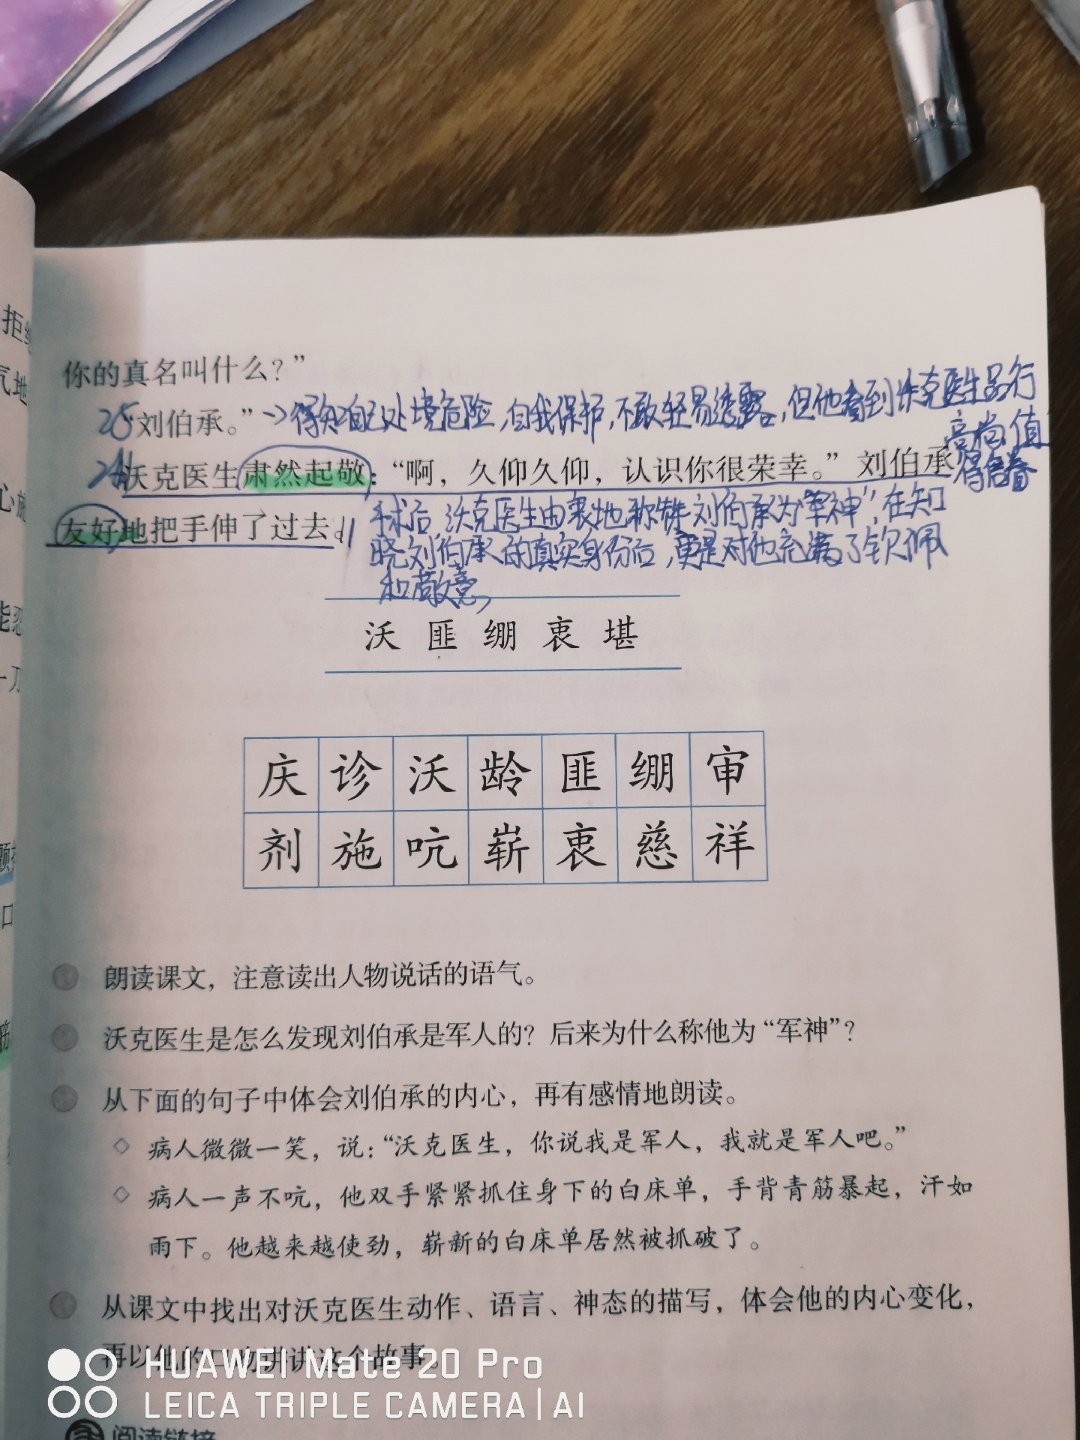 你的真名叫什么？”
25“刘伯承。”→得知自己处境危险，自我保护，不敢轻易透露。但他看到沃克医生品行
高尚，值
沃克医生肃然起敬：“啊，久仰久仰，认识你很荣幸。”刘伯承
得信眷
友好地把手伸了过去。
手术后，沃克医生由衷地称赞刘伯承为“军神”，在知
晓刘伯承的真实身份后，更是对他充满了钦佩
和敬意，
沃 匪 绷 衷 堪
庆 诊 沃 龄 匪 绷 审
剂 施 吭 崭 衷 慈 祥
朗读课文，注意读出人物说话的语气。
沃克医生是怎么发现刘伯承是军人的？后来为什么称他为“军神”？
从下面的句子中体会刘伯承的内心，再有感情地朗读。
◇ 病人微微一笑，说：“沃克医生，你说我是军人，我就是军人吧。”
◇ 病人一声不吭，他双手紧紧抓住身下的白床单，手背青筋暴起，汗如
雨下。他越来越使劲，崭新的白床单居然被抓破了。
从课文中找出对沃克医生动作、语言、神态的描写，体会他的内心变化，
再以他的口吻讲讲这个故事。
HUAWEI Mate 20 Pro
LEICA TRIPLE CAMERA | AI
阅读链接